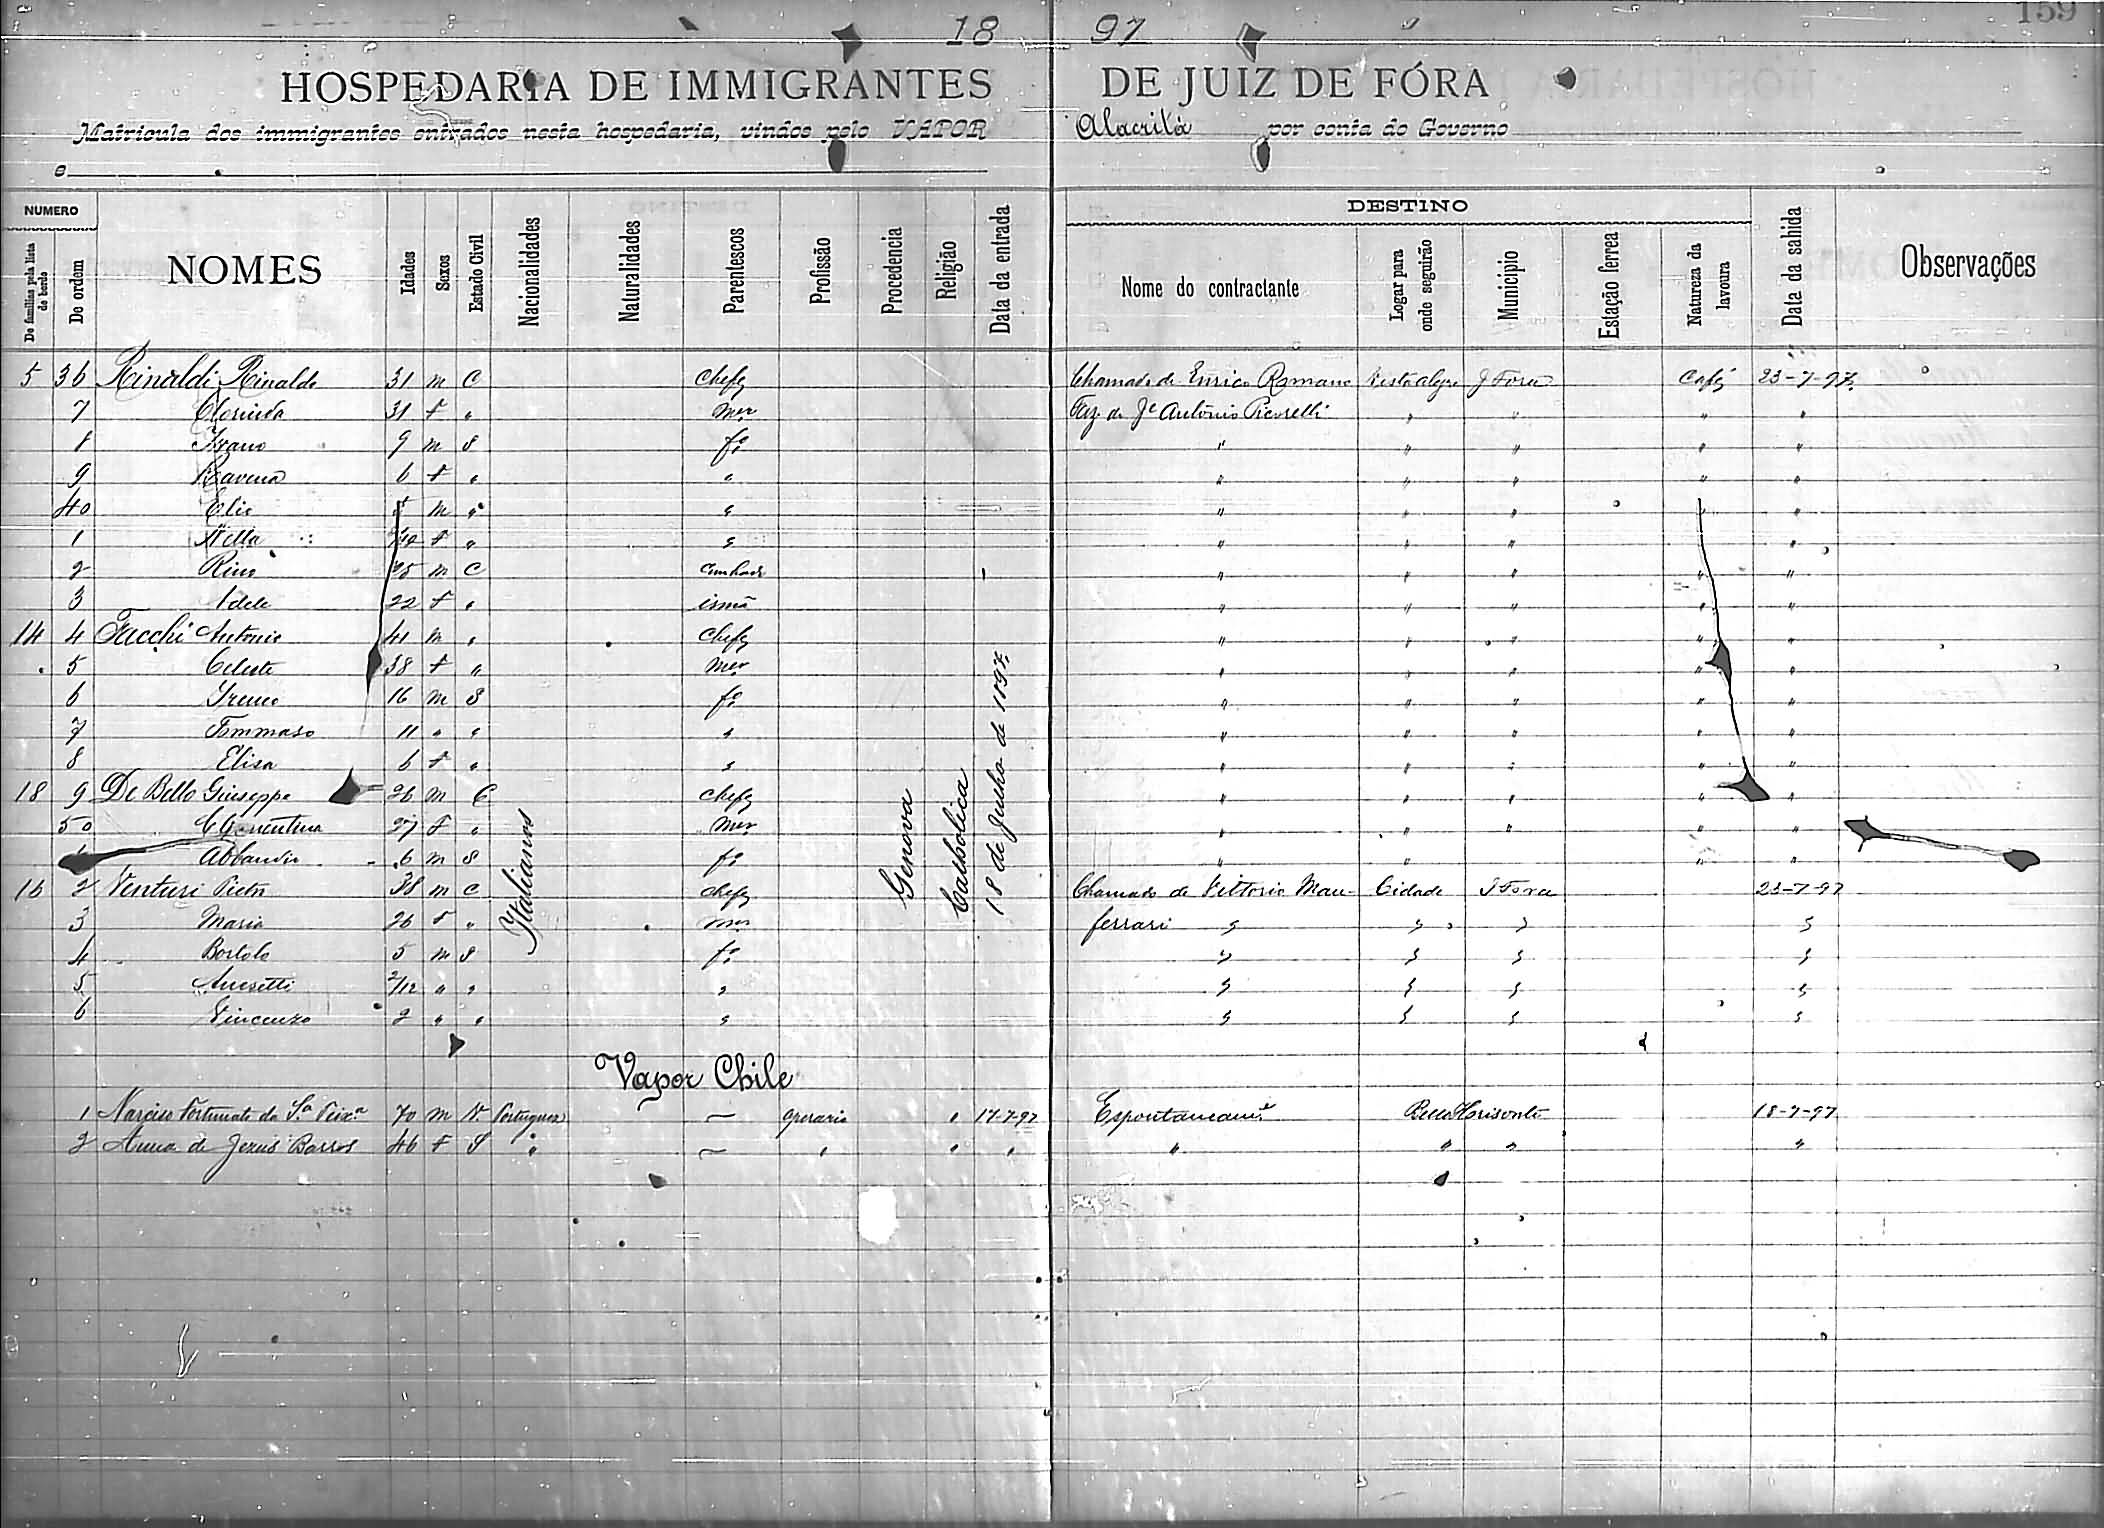 159
18 97
HOSPEDARIA DE IMMIGRANTES DE JUIZ DE FÓRA
Matricula dos immigrantes entrados nesta hospedaria, vindos pelo VAPOR Alacrità por conta do Governo
e
NUMERO DESTINO
De familias pela lista de bordo De ordem NOMES Idades Sexos Estado Civil Nacionalidades Naturalidades Parentescos Profissão Procedencia Religião Data da entrada Nome do contractante Logar para onde seguirão Municipio Estação ferrea Natureza da lavoura Data da sahida Observações
5 36 Rinaldi Rinaldo 31 m C Chefe Chamado de Enrico Romano Vista alegre J Fora Café 23-7-97
7 Clorinda 31 f " mer Faz. de Je Antônio Picorelli " " " "
8 Ivano 9 m S fo " " " " "
9 Ravena 6 f " " " " " " "
40 Elio 5 m " " " " " " "
1 Nella f " " " " " "
2 Rino 25 m C Cunhado " " " " "
3 Adele 22 f " irmã " " " " "
14 4 Facchi Antonio 41 m " Chefe " " " " "
5 Celeste 38 f " mer " " " " "
6 Ireneo 16 m S fo " " " " "
7 Tommaso 11 " " " " " " " "
8 Elisa 6 f " " " " " " "
18 9 De Bello Giuseppe 26 m C Chefe " " " " "
50 Clementina 27 f " mer " " " " "
6 m S fo " " " "
16 2 Venturi Pietro 38 m C Chefe Chamado de Vittorio Man- Cidade J Fora 23-7-97
3 Maria 26 f " mer ferrari " " " "
4 Bortolo 5 m S fo " " " "
5 2/12 " " " " " " "
6 Vincenzo 2 " " " " " " "
Italianos Genova Catholica 18 de Junho de 1897
Vapor Chile
1 Narciso Fortunato da Sa Teixa 70 m Vo Portuguez — operario " 17-7-97 Espontaneamte Bello Horisonte 18-7-97
2 Anna de Jezus Barros 46 f S " — " " " " " " "